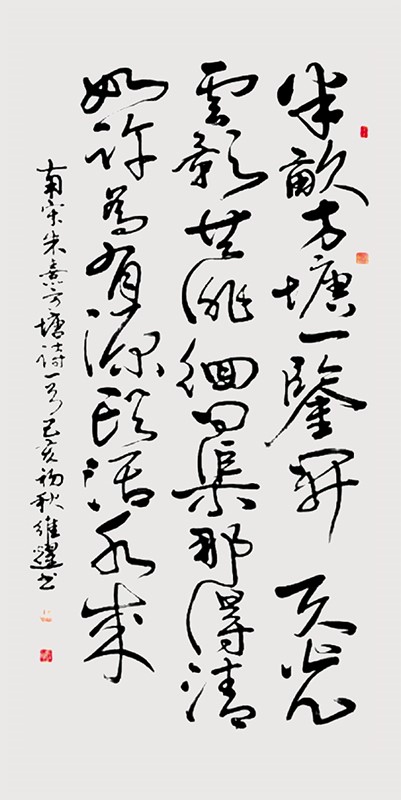 半畝方塘一鑒開天光
雲影共徘徊問渠那得清
如許為有源頭活水來
南宋朱熹方塘詩一首己亥初秋維書